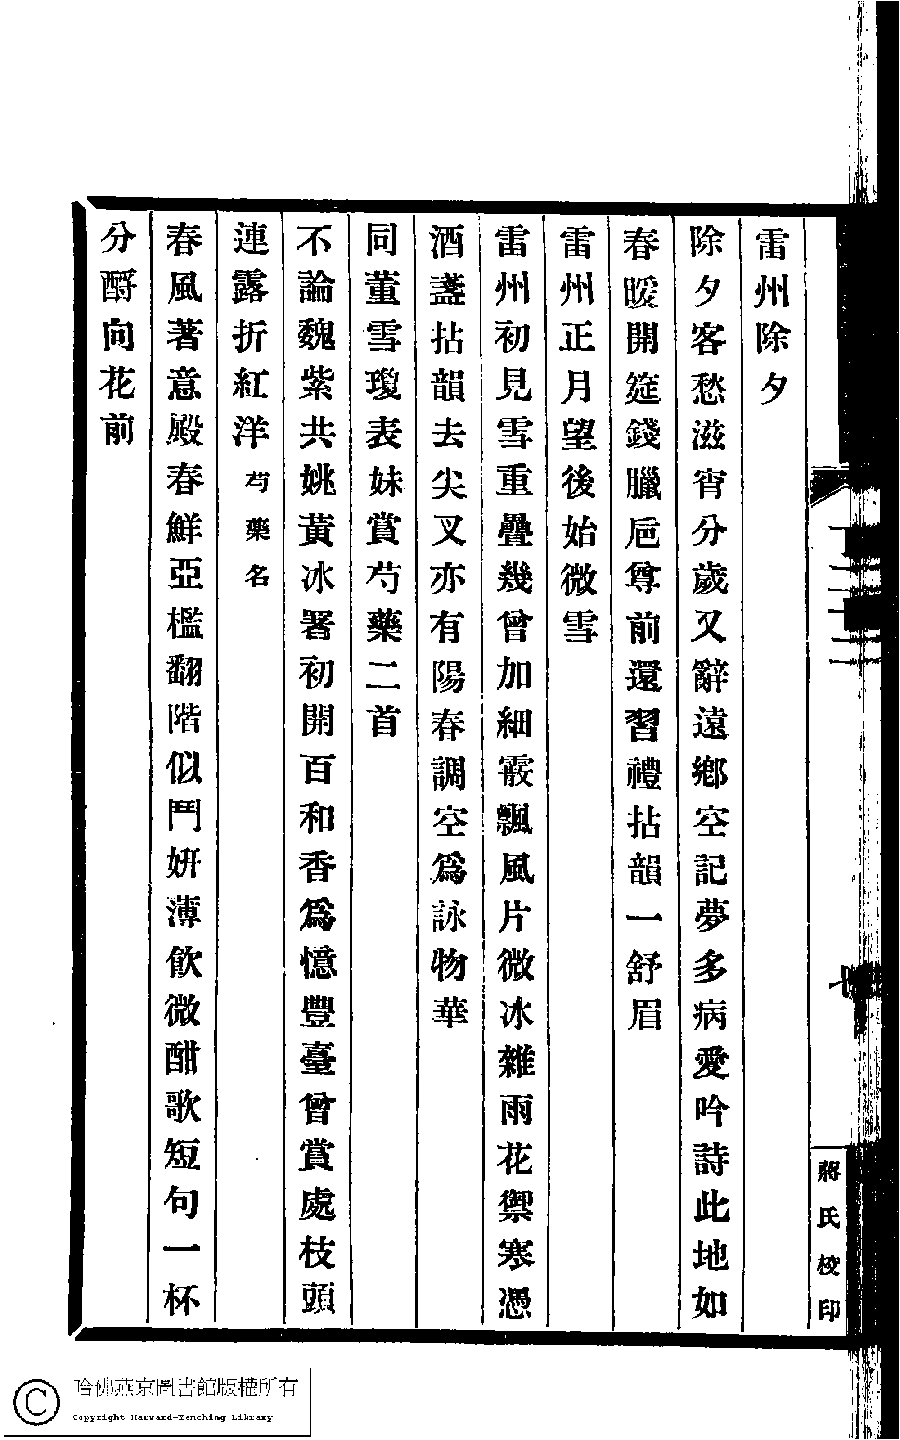 雷州除夕
除夕客愁滋宵分歲又辭遠鄉空記夢多病愛吟詩此地如
春暖開筵錢臘卮尊前還習禮拈韻一舒眉
雷州正月望後始微雪
雷州初見雪重疊幾曾加細霰飄風片微冰雜雨花禦寒憑
酒盞拈韻去尖叉亦有陽春調空爲詠物華
同董雪瓊表妹賞芍藥二首
不論魏紫共姚黃冰署初開百和香爲憶豐臺曾賞處枝頭
連露折紅洋芍藥名
春風著意殿春鮮亞檻翻階似鬥姸薄飲微酣歌短句一杯
分酹向花前
蔣氏校印
哈佛燕京圖書館版權所有
Copyright Harvard-Yenching Library